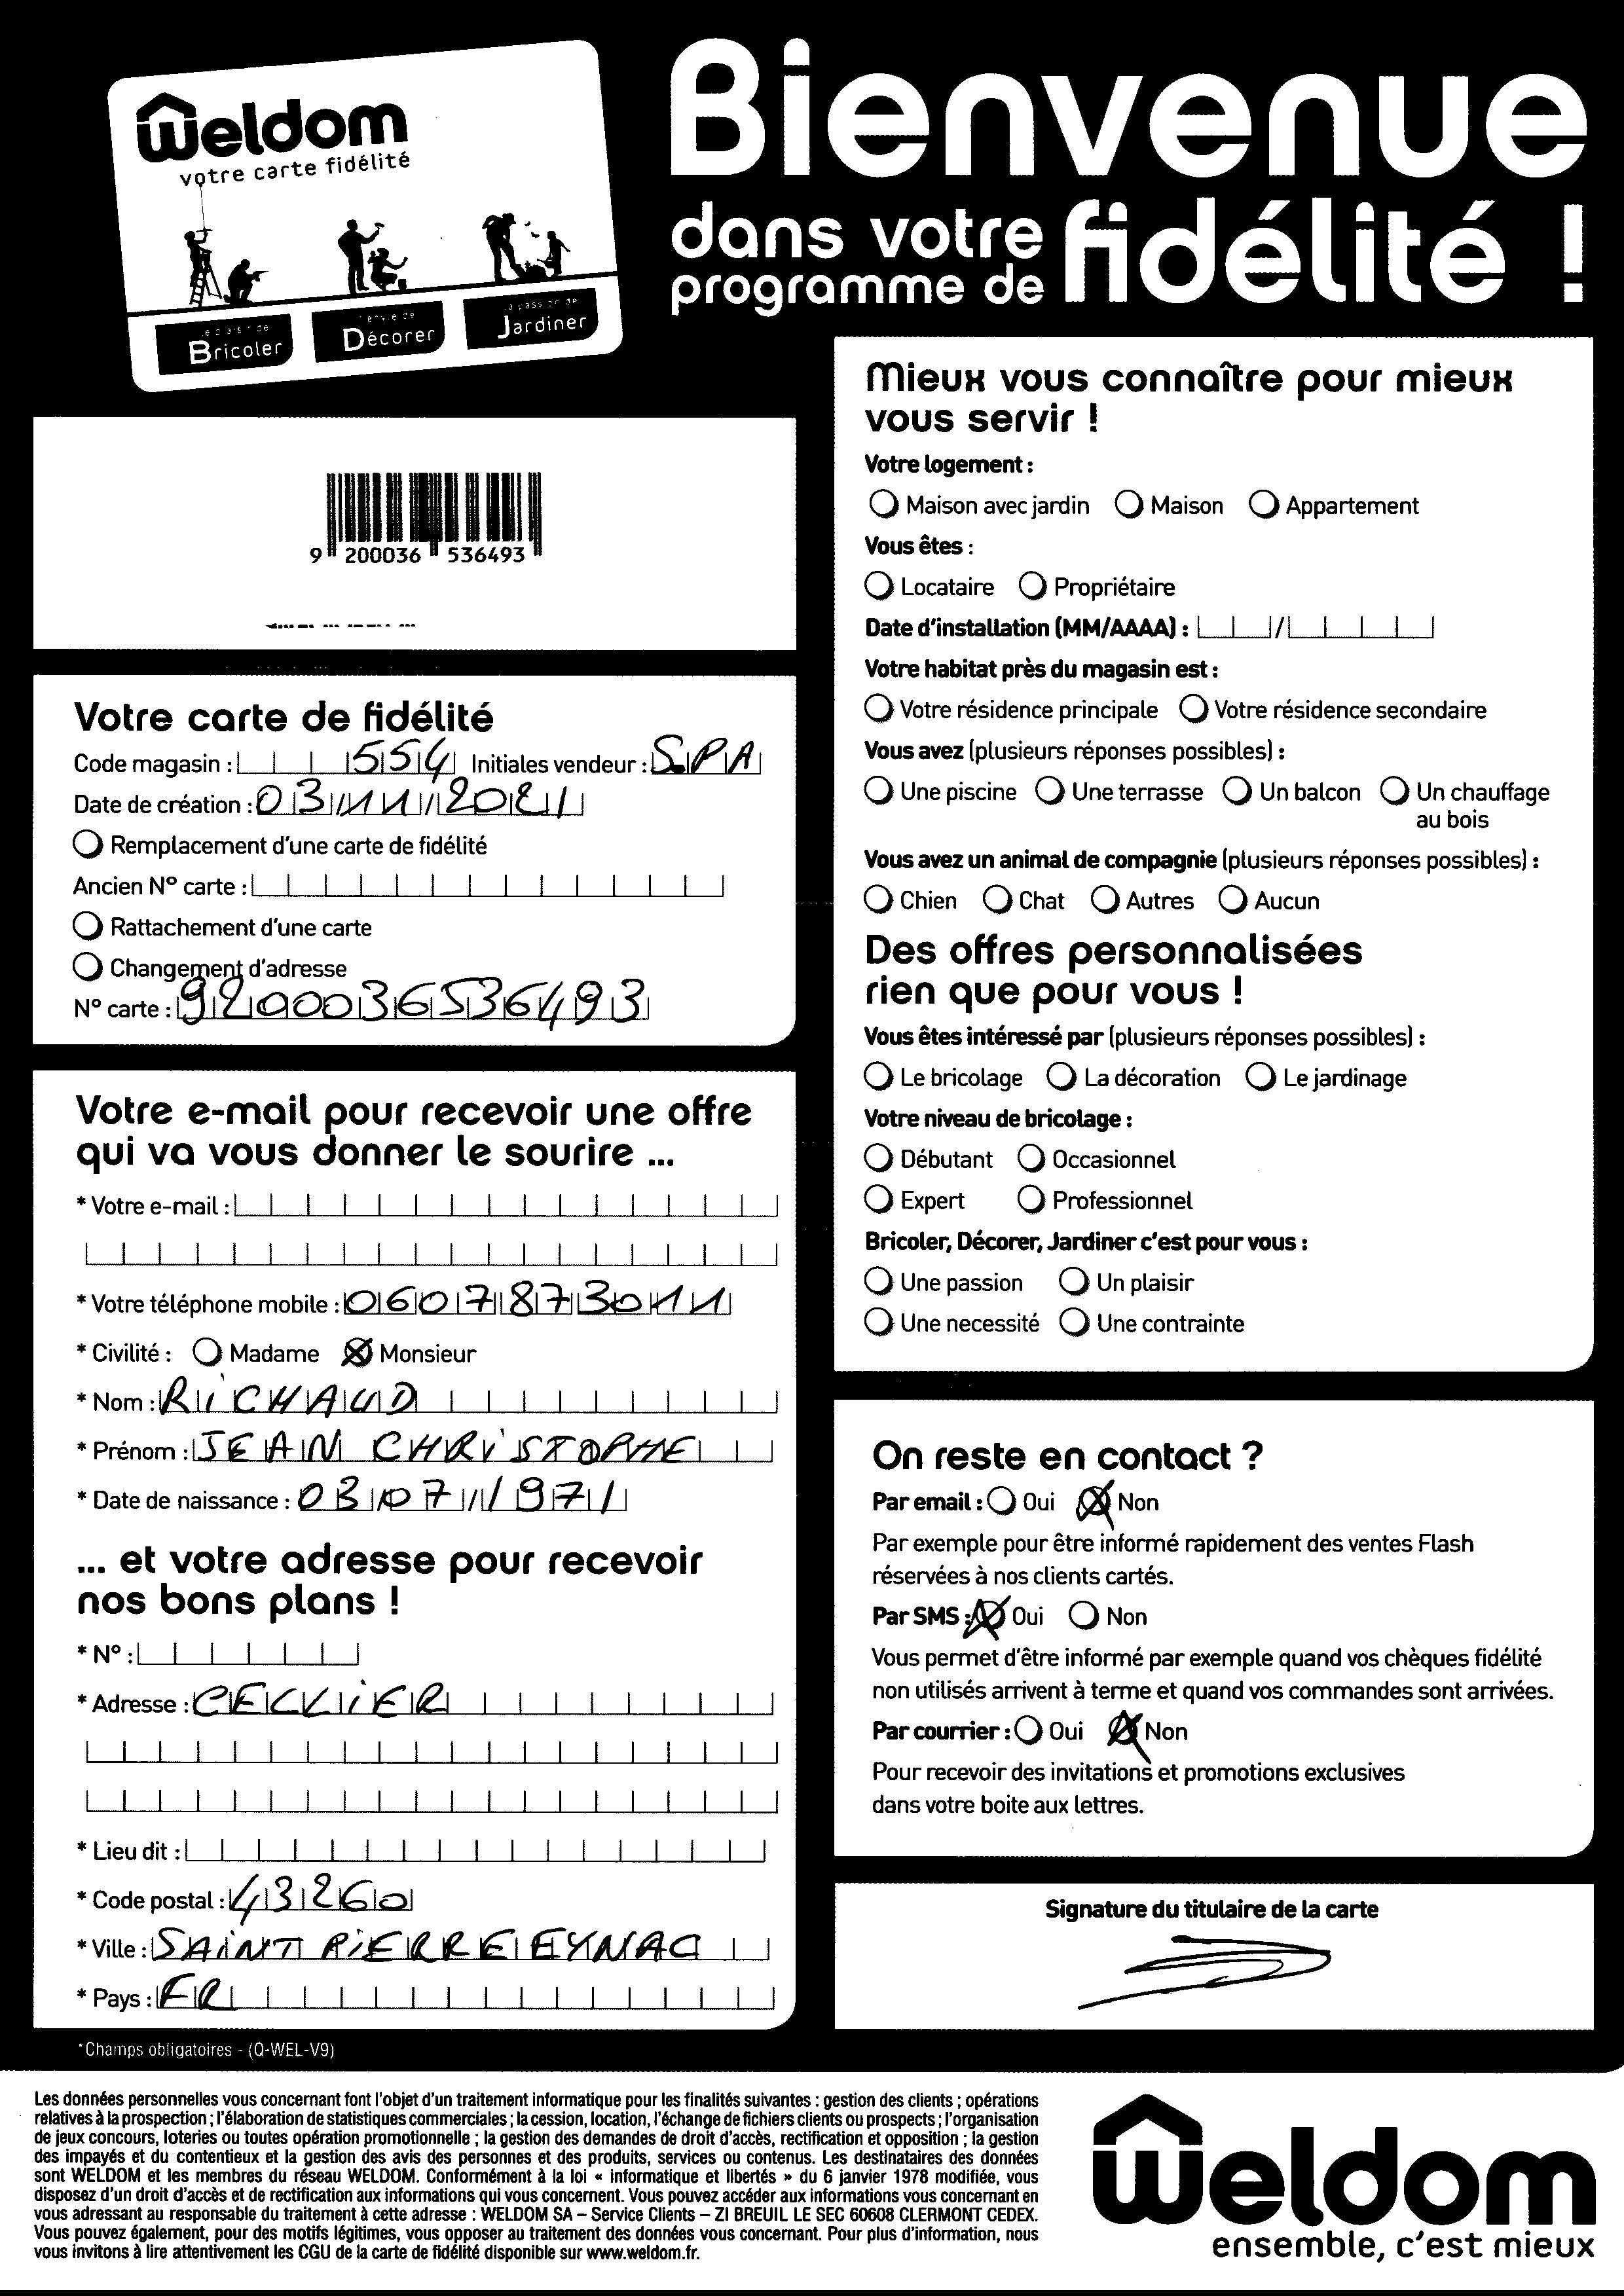 Weldom
votre carte fidélité
Bricoler
Décorer
Jardiner
Bienvenue
dans votre
programme de fidélité !
9 200036 536493
Votre carte de fidélité
Code magasin : 554 Initiales vendeur : S.PA
Date de création : 03/11/2021
Remplacement d'une carte de fidélité
Ancien N° carte :
Rattachement d'une carte
Changement d'adresse
N° carte : 9200036536493
Votre e-mail pour recevoir une offre
qui va vous donner le sourire ...
* Votre e-mail :
* Votre téléphone mobile : 0607873011
* Civilité : Madame Monsieur
* Nom : RICHAUD
* Prénom : JEAN CHRISTOPHE
* Date de naissance : 03/07/1971
... et votre adresse pour recevoir
nos bons plans !
* N° :
* Adresse : CECLIER
* Lieu dit :
* Code postal : 43260
* Ville : SAINT PIERRE EYNAC
* Pays : FR
*Champs obligatoires - (Q-WEL-V9)
Mieux vous connaître pour mieux
vous servir !
Votre logement :
Maison avec jardin Maison Appartement
Vous êtes :
Locataire Propriétaire
Date d'installation (MM/AAAA) : /
Votre habitat près du magasin est :
Votre résidence principale Votre résidence secondaire
Vous avez (plusieurs réponses possibles) :
Une piscine Une terrasse Un balcon Un chauffage
au bois
Vous avez un animal de compagnie (plusieurs réponses possibles) :
Chien Chat Autres Aucun
Des offres personnalisées
rien que pour vous !
Vous êtes intéressé par (plusieurs réponses possibles) :
Le bricolage La décoration Le jardinage
Votre niveau de bricolage :
Débutant Occasionnel
Expert Professionnel
Bricoler, Décorer, Jardiner c'est pour vous :
Une passion Un plaisir
Une necessité Une contrainte
On reste en contact ?
Par email : Oui Non
Par exemple pour être informé rapidement des ventes Flash
réservées à nos clients cartés.
Par SMS : Oui Non
Vous permet d'être informé par exemple quand vos chèques fidélité
non utilisés arrivent à terme et quand vos commandes sont arrivées.
Par courrier : Oui Non
Pour recevoir des invitations et promotions exclusives
dans votre boite aux lettres.
Signature du titulaire de la carte
Les données personnelles vous concernant font l'objet d'un traitement informatique pour les finalités suivantes : gestion des clients ; opérations
relatives à la prospection ; l'élaboration de statistiques commerciales ; la cession, location, l'échange de fichiers clients ou prospects ; l'organisation
de jeux concours, loteries ou toutes opération promotionnelle ; la gestion des demandes de droit d'accès, rectification et opposition ; la gestion
des impayés et du contentieux et la gestion des avis des personnes et des produits, services ou contenus. Les destinataires des données
sont WELDOM et les membres du réseau WELDOM. Conformément à la loi « informatique et libertés » du 6 janvier 1978 modifiée, vous
disposez d'un droit d'accès et de rectification aux informations qui vous concernent. Vous pouvez accéder aux informations vous concernant en
vous adressant au responsable du traitement à cette adresse : WELDOM SA – Service Clients – ZI BREUIL LE SEC 60608 CLERMONT CEDEX.
Vous pouvez également, pour des motifs légitimes, vous opposer au traitement des données vous concernant. Pour plus d'information, nous
vous invitons à lire attentivement les CGU de la carte de fidélité disponible sur www.weldom.fr.
Weldom
ensemble, c'est mieux